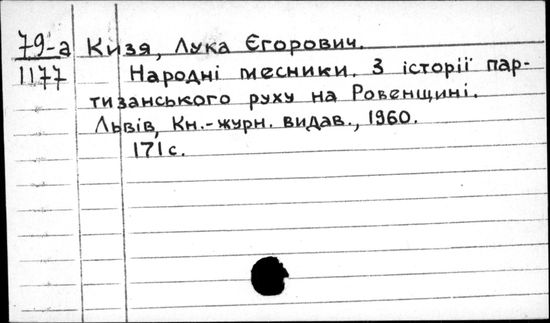 79-а Кизя, Лука Єгорович.
1177 Народні месники. З історії пар-
тизанського руху на Ровенщині.
Львів, Кн.-журн. видав., 1960.
171 с.